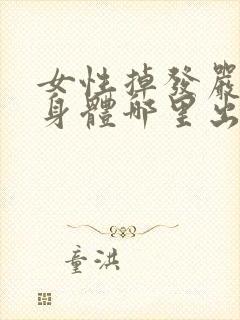 女性掉發嚴
身體哪里出
童洪